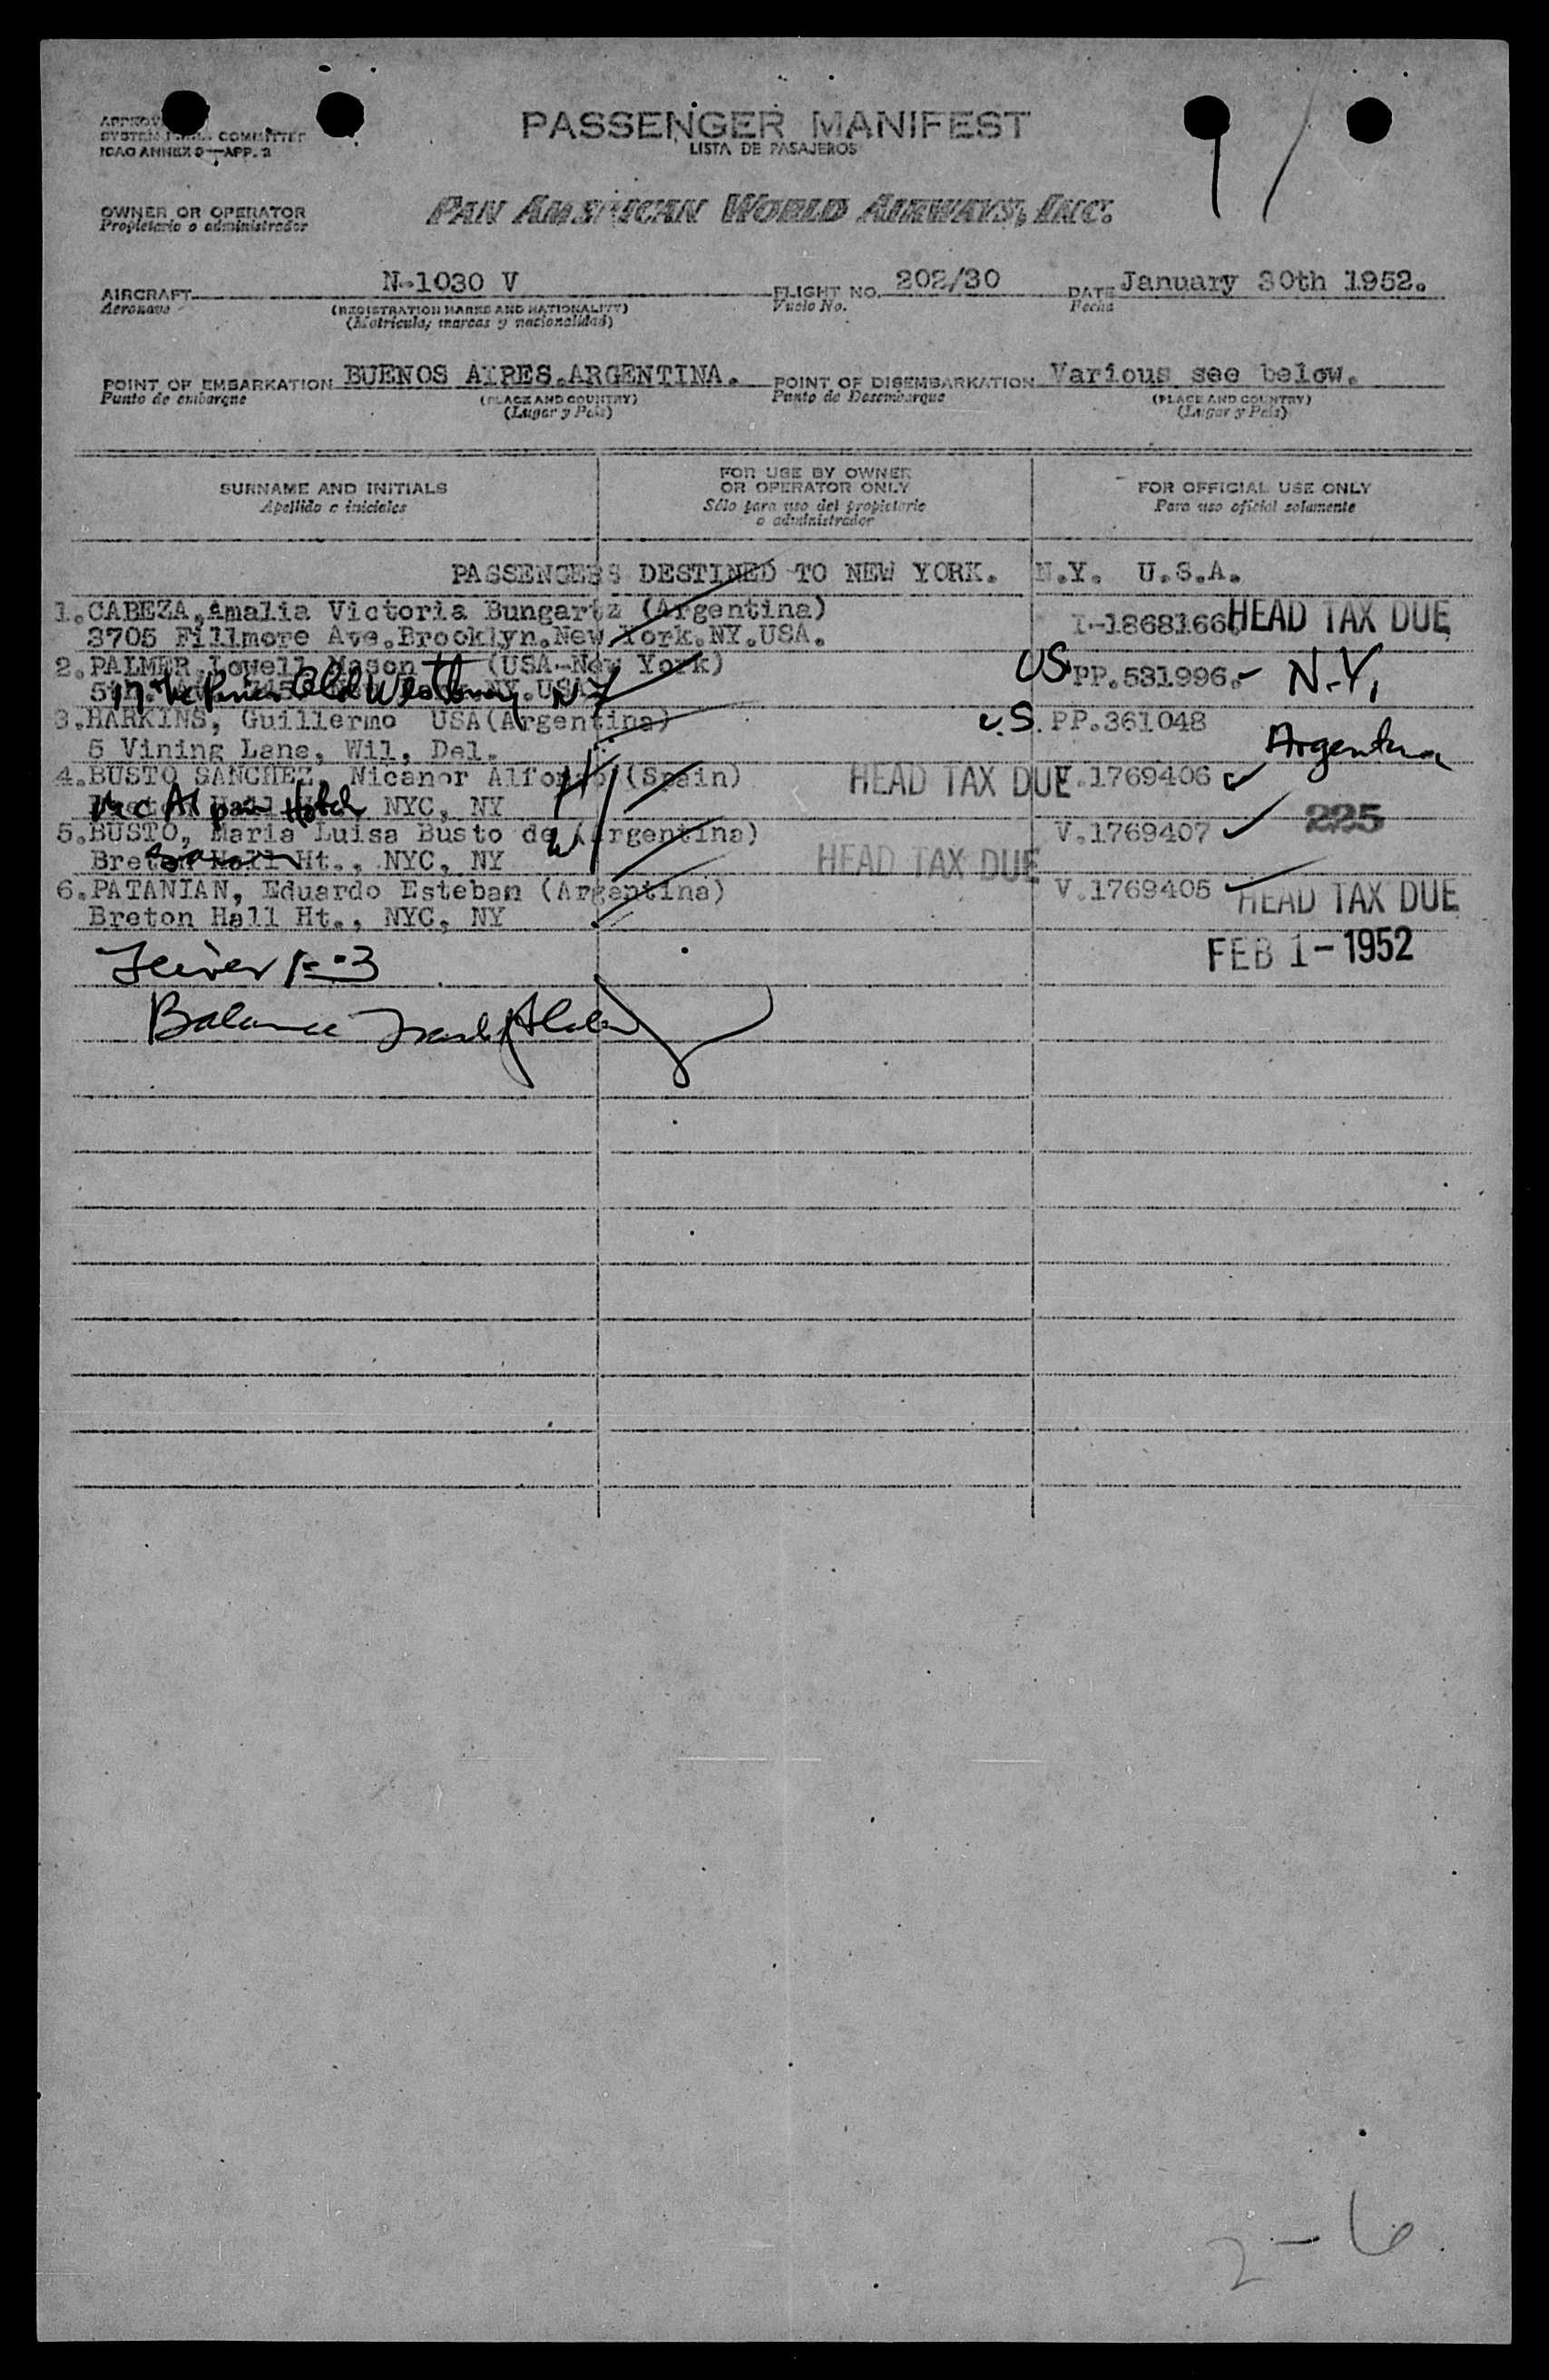 PASSENGER MANIFEST
LISTA DE PASAJEROS
COMMITTEE
ICAO ANNEX 9—APP. 2
OWNER OR OPERATOR
Propietario o administrador
PAN AMERICAN WORLD AIRWAYS, INC.
AIRCRAFT N-1030 V FLIGHT NO. 202/30 DATE January 30th 1952.
Aeronave (REGISTRATION MARKS AND NATIONALITY) Vuelo No. Fecha
(Matricula, marcas y nacionalidad)
POINT OF EMBARKATION BUENOS AIRES.ARGENTINA. POINT OF DISEMBARKATION Various see below.
Punto de embarque (PLACE AND COUNTRY) Punto de Desembarque (PLACE AND COUNTRY)
(Lugar y País) (Lugar y País)
SURNAME AND INITIALS FOR USE BY OWNER OR OPERATOR ONLY FOR OFFICIAL USE ONLY
Apellido e iniciales Sólo para uso del propietario o administrador Para uso oficial solamente
PASSENGERS DESTINED TO NEW YORK. N.Y. U.S.A.
1.CABEZA,Amalia Victoria Bungartz (Argentina) I-1868166 HEAD TAX DUE
3705 Fillmore Ave.Brooklyn.New York.NY.USA.
2.PALMER,Lowell Mason (USA-New York) US PP.531996.- N.Y.
Old Westbury NY
3.HARKINS, Guillermo USA(Argentina) U.S. PP.361048
5 Vining Lane, Wil, Del. Argentina
4.BUSTO SANCHEZ, Nicanor Alfonso (Spain) HEAD TAX DUE V.1769406
Hotel NYC, NY 225
5.BUSTO, Maria Luisa Busto de (Argentina) V.1769407
Breton Hall Ht., NYC, NY HEAD TAX DUE
6.PATANIAN, Eduardo Esteban (Argentina) V.1769405 HEAD TAX DUE
Breton Hall Ht., NYC, NY
FEB 1-1952
Balance
2-6